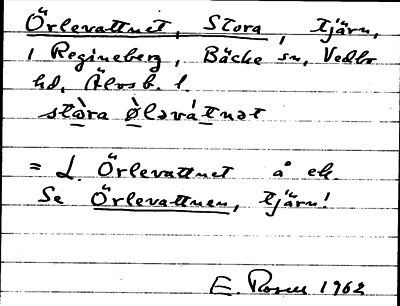 Örlevattnet, Stora, tjärn,
i Regineberg, Bäcke sn, Vedbo
hd, Älvsb. l.
stòra ø̀ləvátnət
= L. Örlevattnet å ek.
Se Örlevattnen, tjärn!
E. Rosell 1962